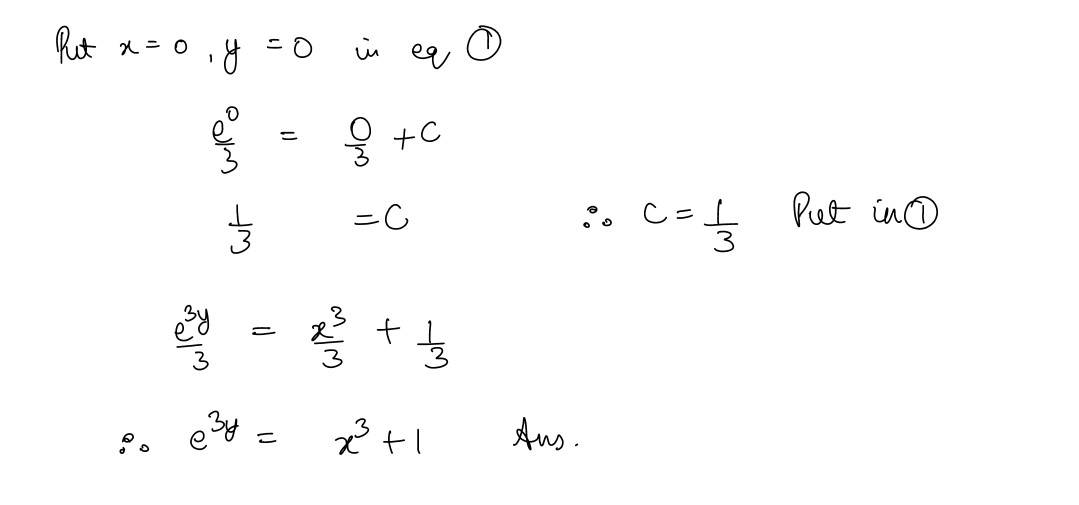 Put x = 0 , y = 0 in eq ①
e⁰/3 = 0/3 + C
1/3 = C ∴ C = 1/3 Put in ①
e³ʸ/3 = x³/3 + 1/3
∴ e³ʸ = x³ + 1 Ans.